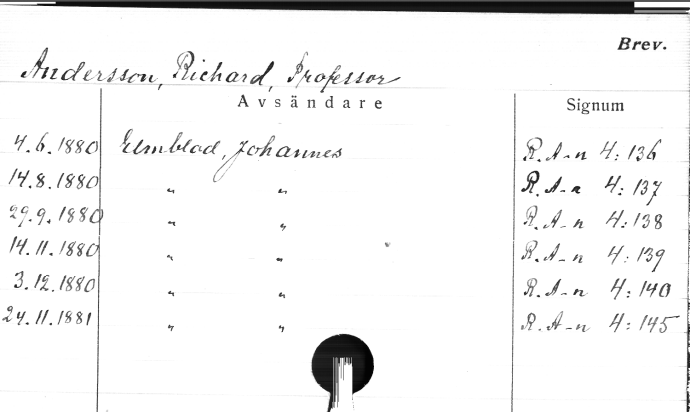 Brev.
Andersson, Richard, Professor
Avsändare Signum
4.6.1880 Elmblad, Johannes R. A-n 4:136
14.8.1880 " " R. A-n 4:137
29.9.1880 " " R. A-n 4:138
14.11.1880 " " R. A-n 4:139
3.12.1880 " " R. A-n 4:140
24.11.1881 " " R. A-n 4:145